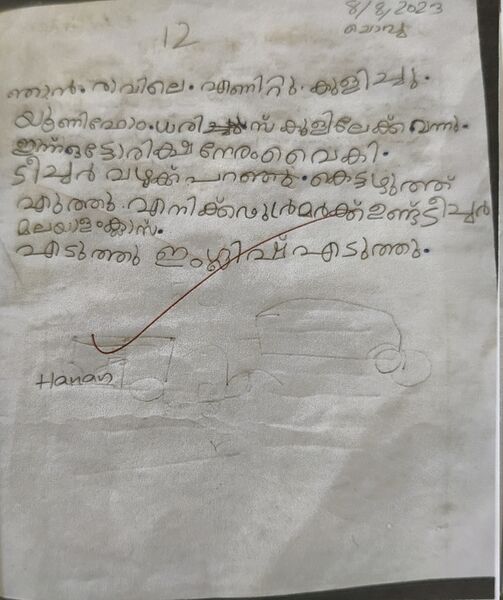 8/8/2023
ചൊവ്വ
12
ഞാൻ. രാവിലെ. എണിറ്റു. കുളിച്ചു.
യൂണിഫോം ധരിച്ചു സ്കൂളിലേക്ക് വന്നു.
ഇന്ന് ഒട്ടോരിക്ഷ നേരം വൈകി.
ടീച്ചർ വഴക്ക് പറഞ്ഞു. കെട്ടഴുത്ത്
എടുത്തു. എനിക്ക് ഫുൾമർക്ക് ഉണ്ട് ടീച്ചർ
മലയാളം ക്ലാസ്.
എടുത്തു ഇംഗ്ലിഷ് എടുത്തു.
Hanan